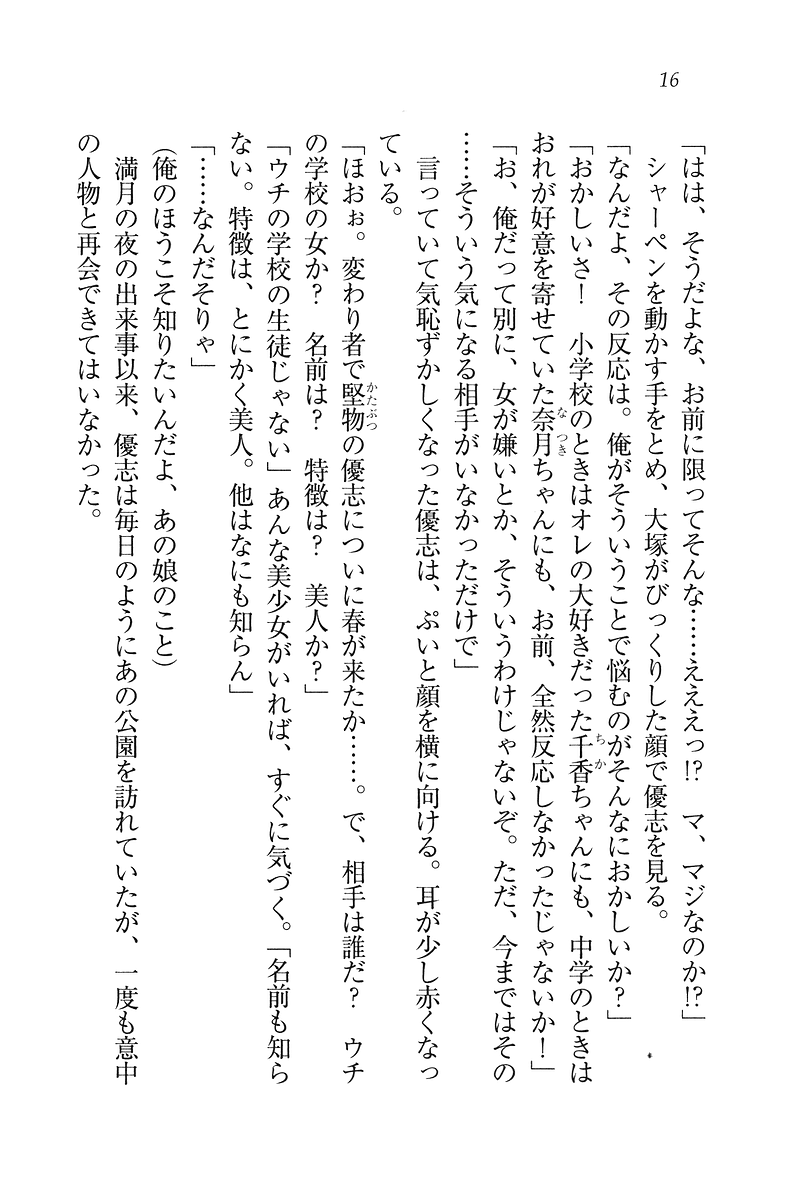 16
「はは、そうだよな、お前に限ってそんな……えええっ!?　マ、マジなのか!?」
　シャーペンを動かす手をとめ、大塚がびっくりした顔で優志を見る。
「なんだよ、その反応は。俺がそういうことで悩むのがそんなにおかしいか？」
「おかしいさ！　小学校のときはオレの大好きだった千香ちゃんにも、中学のときは
おれが好意を寄せていた奈月ちゃんにも、お前、全然反応しなかったじゃないか！」
「お、俺だって別に、女が嫌いとか、そういうわけじゃないぞ。ただ、今まではその
……そういう気になる相手がいなかっただけで」
　言っていて気恥ずかしくなった優志は、ぷいと顔を横に向ける。耳が少し赤くなっ
ている。
「ほおぉ。変わり者で堅物の優志についに春が来たか……。で、相手は誰だ？　ウチ
の学校の女か？　名前は？　特徴は？　美人か？」
「ウチの学校の生徒じゃない」あんな美少女がいれば、すぐに気づく。「名前も知ら
ない。特徴は、とにかく美人。他はなにも知らん」
「……なんだそりゃ」
（俺のほうこそ知りたいんだよ、あの娘のこと）
　満月の夜の出来事以来、優志は毎日のようにあの公園を訪れていたが、一度も意中
の人物と再会できてはいなかった。